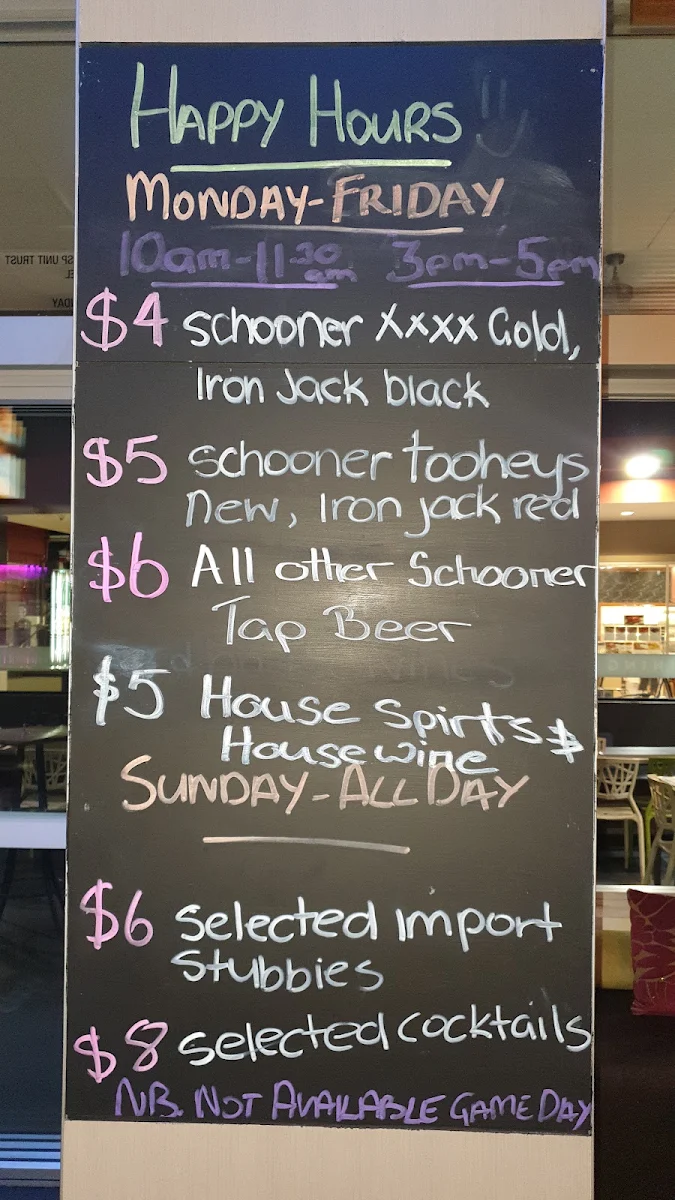 HAPPY HOURS
MONDAY-FRIDAY
10am-11:30am 3pm-5pm
$4 schooner XXXX Gold,
Iron Jack black
$5 schooner tooheys
new, Iron jack red
$6 All other Schooner
Tap Beer
$5 House spirts &
House wine
SUNDAY-ALL DAY
$6 selected import
stubbies
$8 selected cocktails
NB. NOT AVAILABLE GAME DAY
SP UNIT TRUST